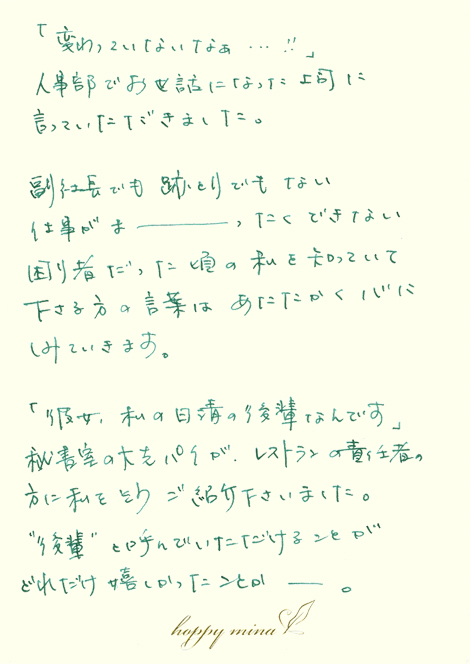 「変わっていないなぁ…!!」
人事部でお世話になった上司に
言っていただきました。
副社長でも跡とりでもない
仕事がま―――ったくできない
困り者だった頃の私を知っていて
下さる方の言葉はあたたかく心に
しみていきます。
「彼女、私の日清の後輩なんです」
秘書室の大先パイが、レストランの責任者の
方に私を ご紹介下さいました。
"後輩"と呼んでいただけることが
どれだけ嬉しかったことか ― 。
happy mina